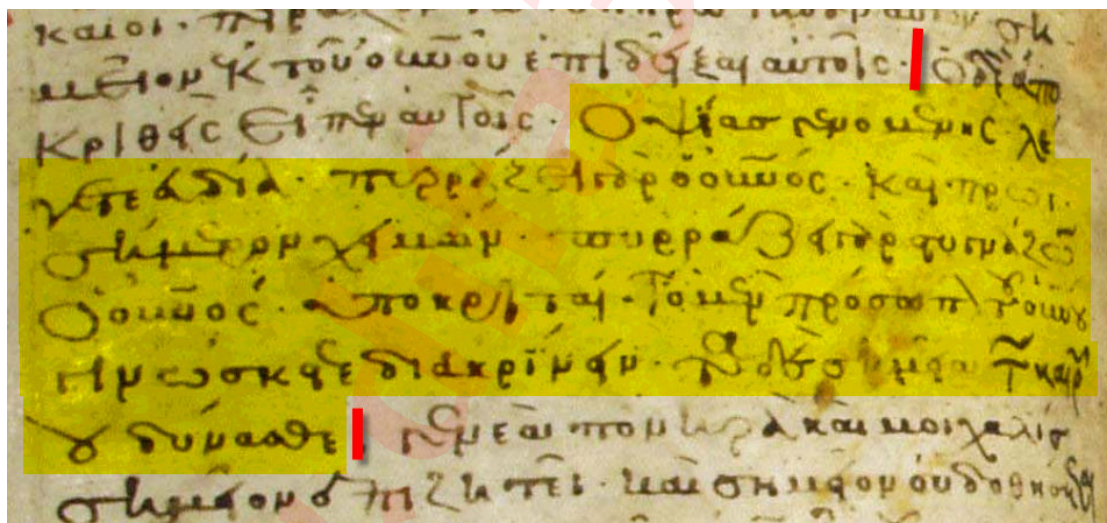 μεῖον ἐκ τοῦ οὐνοῦ ἐπιδεῖξαι αὐτοῖς· ὁ δὲ ἀπο
κριθεὶς εἶπεν αὐτοῖς· Ὀψίας γενομένης λέ
γετε εὐδία· πυρράζει γὰρ ὁ οὐνος· καὶ πρωι·
σήμερον χειμών· πυρράζει γὰρ στυγνάζων
ὁ οὐνος· ὑποκριταί· τὸ μὲν πρόσωπον τοῦ οὐνοῦ
γινώσκετε διακρίνειν· τὰ δὲ σημεῖα τῶν καιρῶν
οὐ δύνασθε· γενεὰ πονηρὰ καὶ μοιχαλὶς
σημεῖον ἐπιζητεῖ· καὶ σημεῖον οὐ δοθήσεται